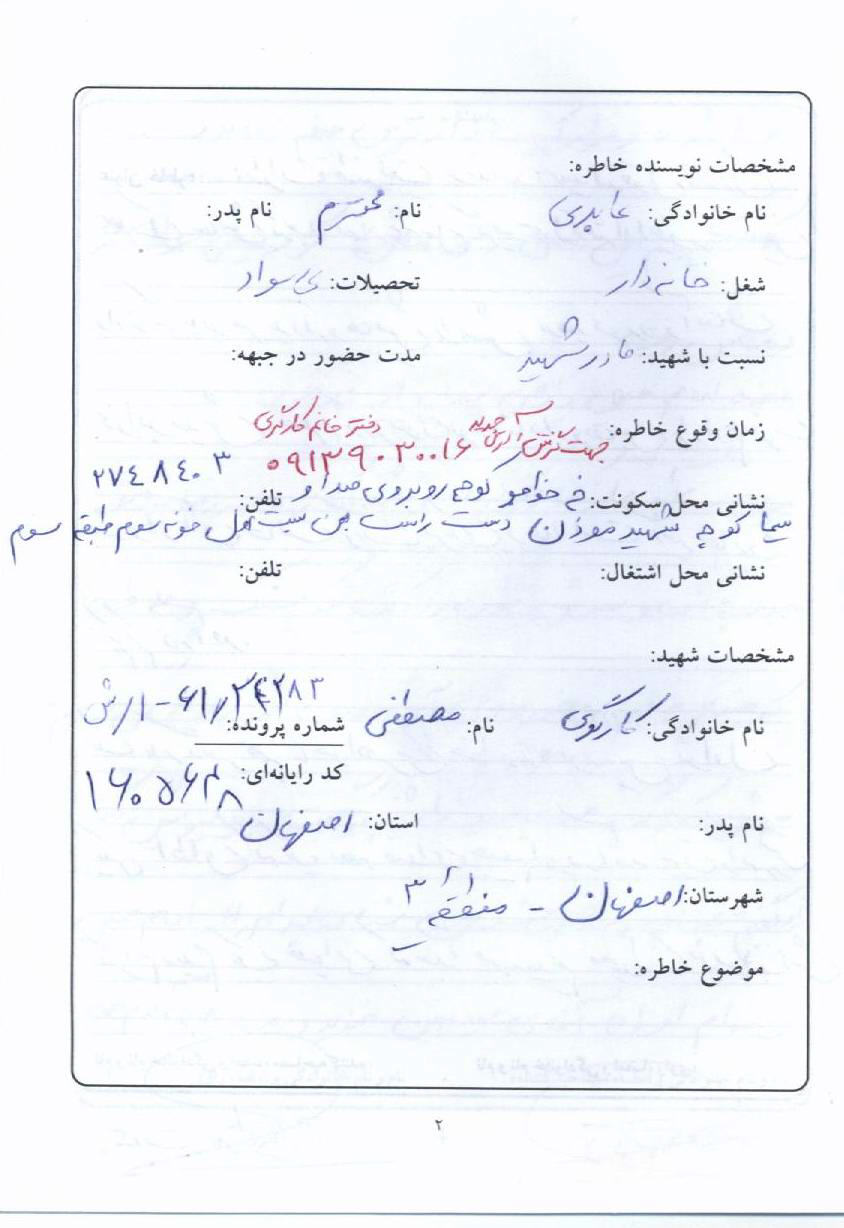 مشخصات نویسنده خاطره:
نام خانوادگی: عابدی نام: محترم نام پدر:
شغل: خانه دار تحصیلات: بی سواد
نسبت با شهید: مادر شهید مدت حضور در جبهه:
زمان وقوع خاطره:
دفتر خانم کارگری
جهت گزارش آدرس جدید ۰۹۱۳۹۰۳۰۰۱۶
۲۷۴۸۴۰۳
نشانی محل سکونت: خ خواجو کوچه روبروی صدا و تلفن:
سیما کوچه شهید موذن دست راست بن بست اول خونه سوم طبقه سوم
نشانی محل اشتغال: تلفن:
مشخصات شهید:
نام خانوادگی: نام: مصطفی شماره پرونده:
کد رایانه‌ای: ۱۶۰۵۶۴۸
نام پدر: استان: اصفهان
شهرستان: اصفهان - منطقه ۳
موضوع خاطره:
۲